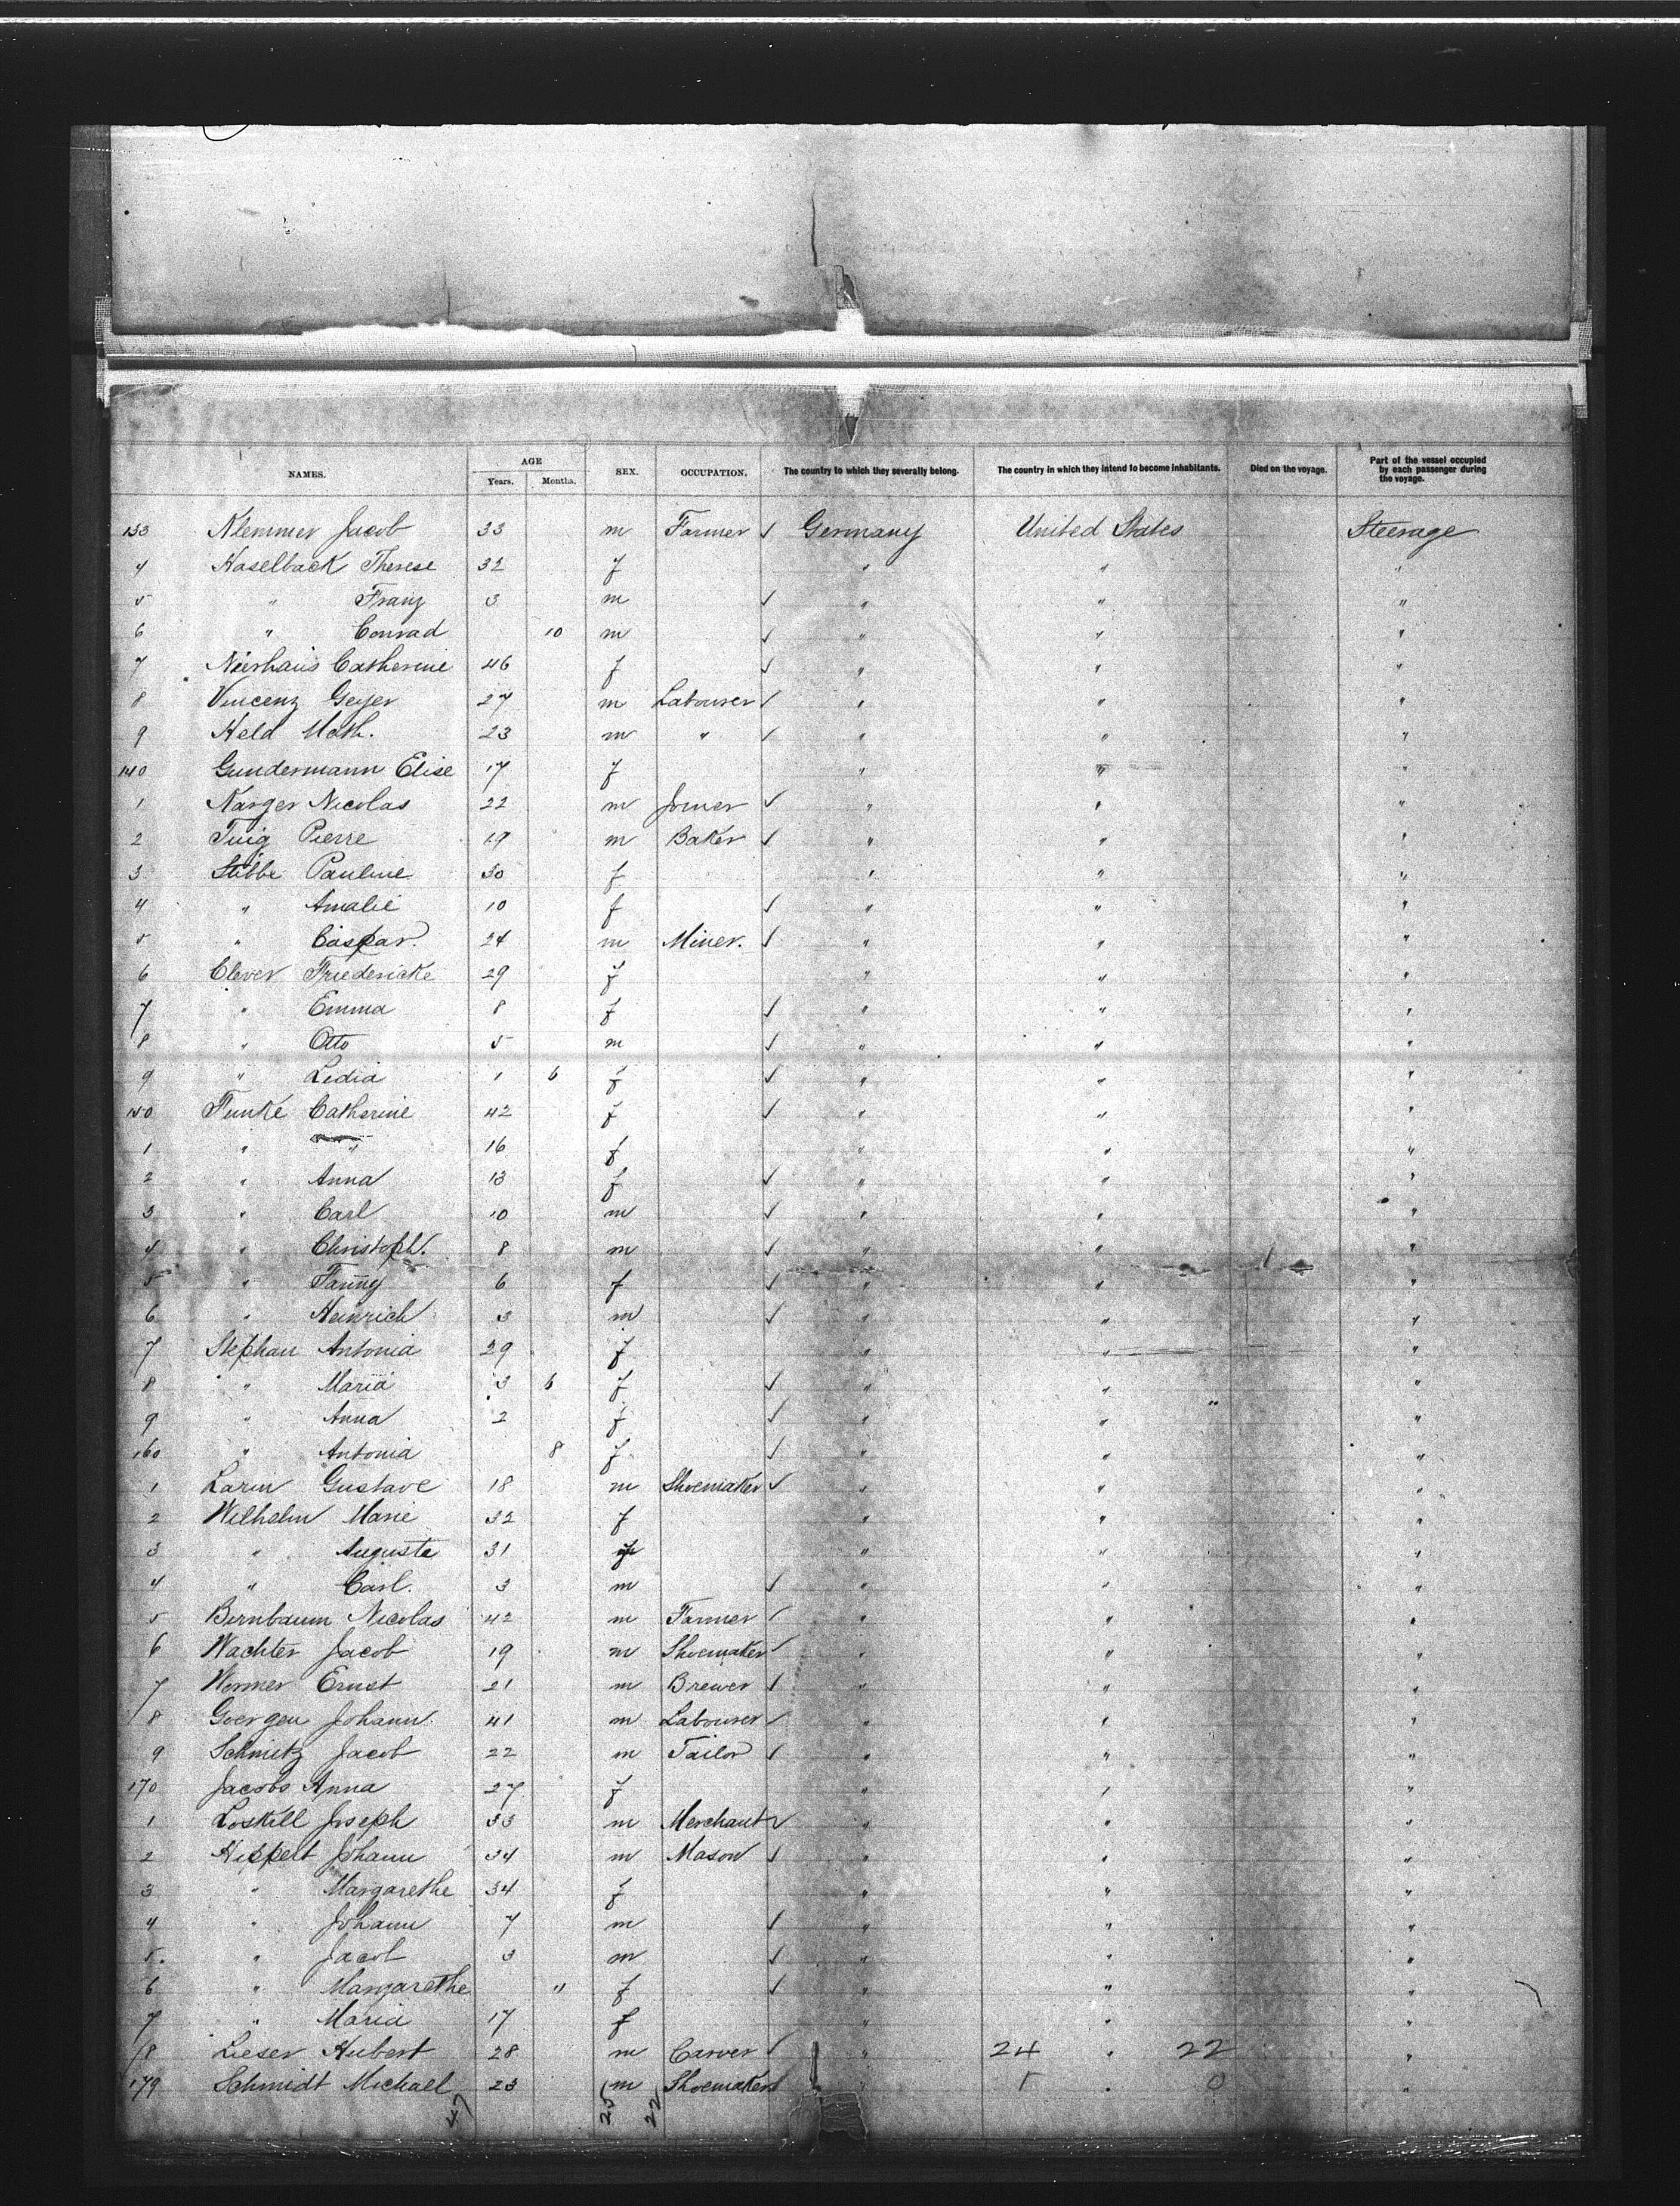 NAMES. AGE Years. Months. SEX. OCCUPATION. The country to which they severally belong. The country in which they intend to become inhabitants. Died on the voyage. Part of the vessel occupied by each passenger during the voyage.
133 Klemmer Jacob 33 m Farmer ✓ Germany United States Steerage
4 Haselback Therese 32 f " " "
5 " Franz 3 m ✓ " " "
6 " Conrad 10 m ✓ " " "
7 Nierhaus Catherine 46 f ✓ " " "
8 Vincenz Geyer 27 m Labourer ✓ " " "
9 Held Math. 23 m " ✓ " " "
140 Gundermann Elise 17 f " " "
1 Karger Nicolas 22 m Joiner ✓ " " "
2 Pierre 19 m Baker ✓ " " "
3 Stibbe Pauline 30 f " " "
4 " Amalie 10 f ✓ " " "
5 " Caspar. 24 m Miner. ✓ " " "
6 Clever Friedericke 29 f " " "
7 " Emma 8 f ✓ " " "
8 " Otto 5 m ✓ " " "
9 " Lidia 1 6 f ✓ " " "
150 Funke Catherine 42 f ✓ " " "
1 " " 16 f " " "
2 " Anna 13 f ✓ " " "
3 " Carl 10 m ✓ " " "
4 " Christoph. 8 m ✓ " " "
5 " Fanny 6 f ✓ " " "
6 " Heinrich 3 m ✓ " " "
7 Stephan Antonia 29 f " " "
8 " Maria 3 6 f ✓ " " "
9 " Anna 2 f ✓ " " "
160 " Antonia 8 f ✓ " " "
1 Larm Gustave 18 m Shoemaker ✓ " " "
2 Wilhelm Marie 32 f " " "
3 " Auguste 31 f " " "
4 " Carl. 3 m ✓ " " "
5 Birnbaum Nicolas 42 m Farmer ✓ " " "
6 Wachter Jacob 19 m Shoemaker ✓ " " "
7 Wormer Ernst 21 m Brewer ✓ " " "
8 Goergen Johann 41 m Labourer ✓ " " "
9 Schmitz Jacob 22 m Tailor ✓ " " "
170 Jacobs Anna 27 f " " "
1 Loskill Joseph 33 m Merchant ✓ " " "
2 Hippelt Johann 34 m Mason ✓ " " "
3 " Margarethe 34 f " " "
4 " Johann 7 m ✓ " " "
5. " Jacob 3 m ✓ " " "
6 " Margarethe 11 f ✓ " " "
7 " Maria 17 f " " "
8 Lieser Hubert 28 m Carver ✓ " 24 " 22 "
179 Schmidt Michael 23 m Shoemaker ✓ " 1 " 0 "
47 25 22